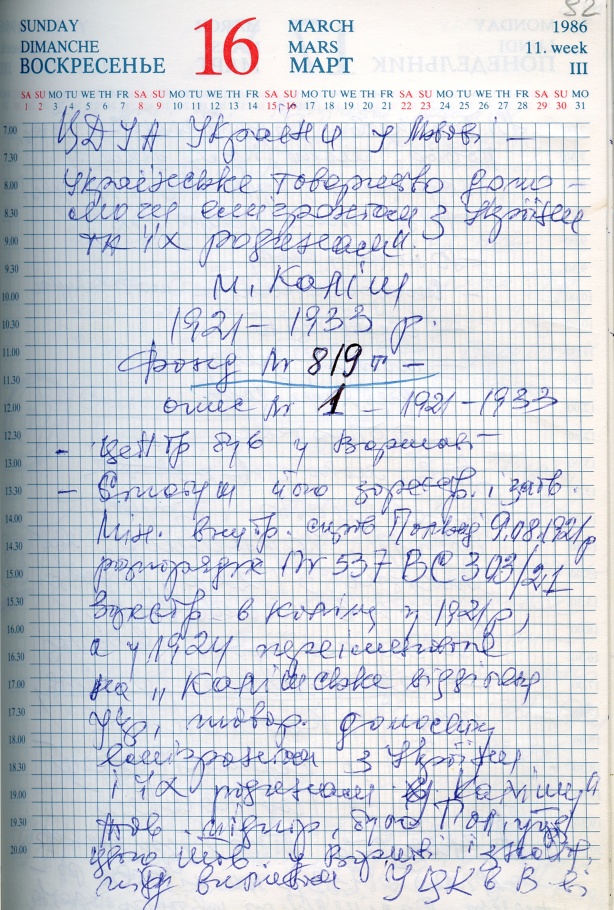 92
SUNDAY MARCH 1986
DIMANCHE 16 MARS 11. week
ВОСКРЕСЕНЬЕ МАРТ III
SA SU MO TU WE TH FR SA SU MO TU WE TH FR SA SU MO TU WE TH FR SA SU MO TU WE TH FR SA SU MO
1 2 3 4 5 6 7 8 9 10 11 12 13 14 15 16 17 18 19 20 21 22 23 24 25 26 27 28 29 30 31
7.00 ЦДІА України у Львові –
7.30
8.00 Українське товариство допо-
8.30 моги емігрантам з України
9.00 та їх родинам".
9.30
10.00 м. Каліш
10.30 1921 – 1933 р.
11.00 Фонд № 819 т –
11.30
12.00 опис № 1 – 1921–1933
12.30 - Центр був у Варшаві
13.00
13.30 – Статут його зареєстр. і затв.
14.00 Мін. внутр. справ Польщі 9.08.1921 р
14.30
15.00 розпорядж № 537 ВС 303/21
15.30 в Каліші у 1921 р,
16.00
16.30 а у 1924 перейменоване
17.00 на „Каліське відділення
17.30 Укр. товар. допомоги
18.00
18.30 емігрантам з України
19.00 і їх родинам в Каліші"
19.30
20.00 цього тов. у Варшаві і
під УЦК в В-ві